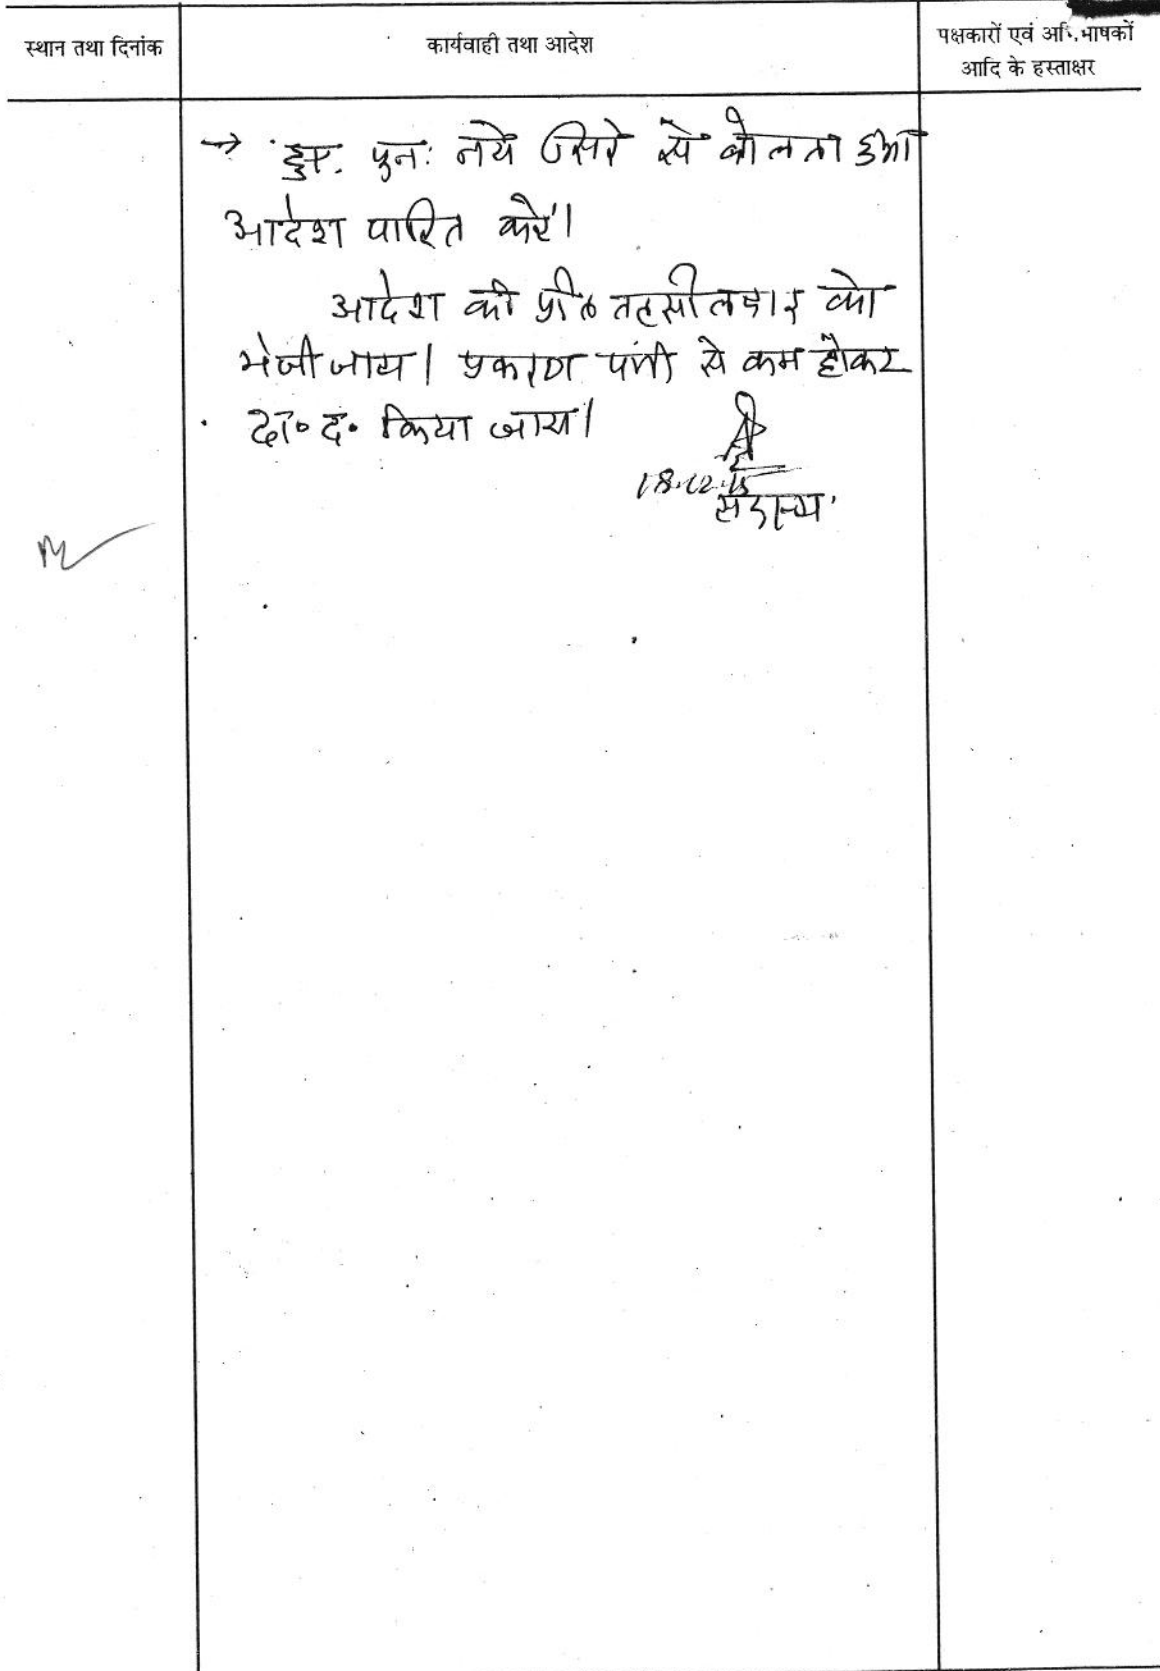 स्थान तथा दिनांक
कार्यवाही तथा आदेश
पक्षकारों एवं अभिभाषकों
आदि के हस्ताक्षर
→ हुए. पुनः नये सिरे से बोलता हुआ
आदेश पारित करें।
आदेश की प्रति तहसीलदार को
भेजी जाय। प्रकरण पंजी से कम होकर
दा० द० किया जाय।
18.12.15
सदस्य